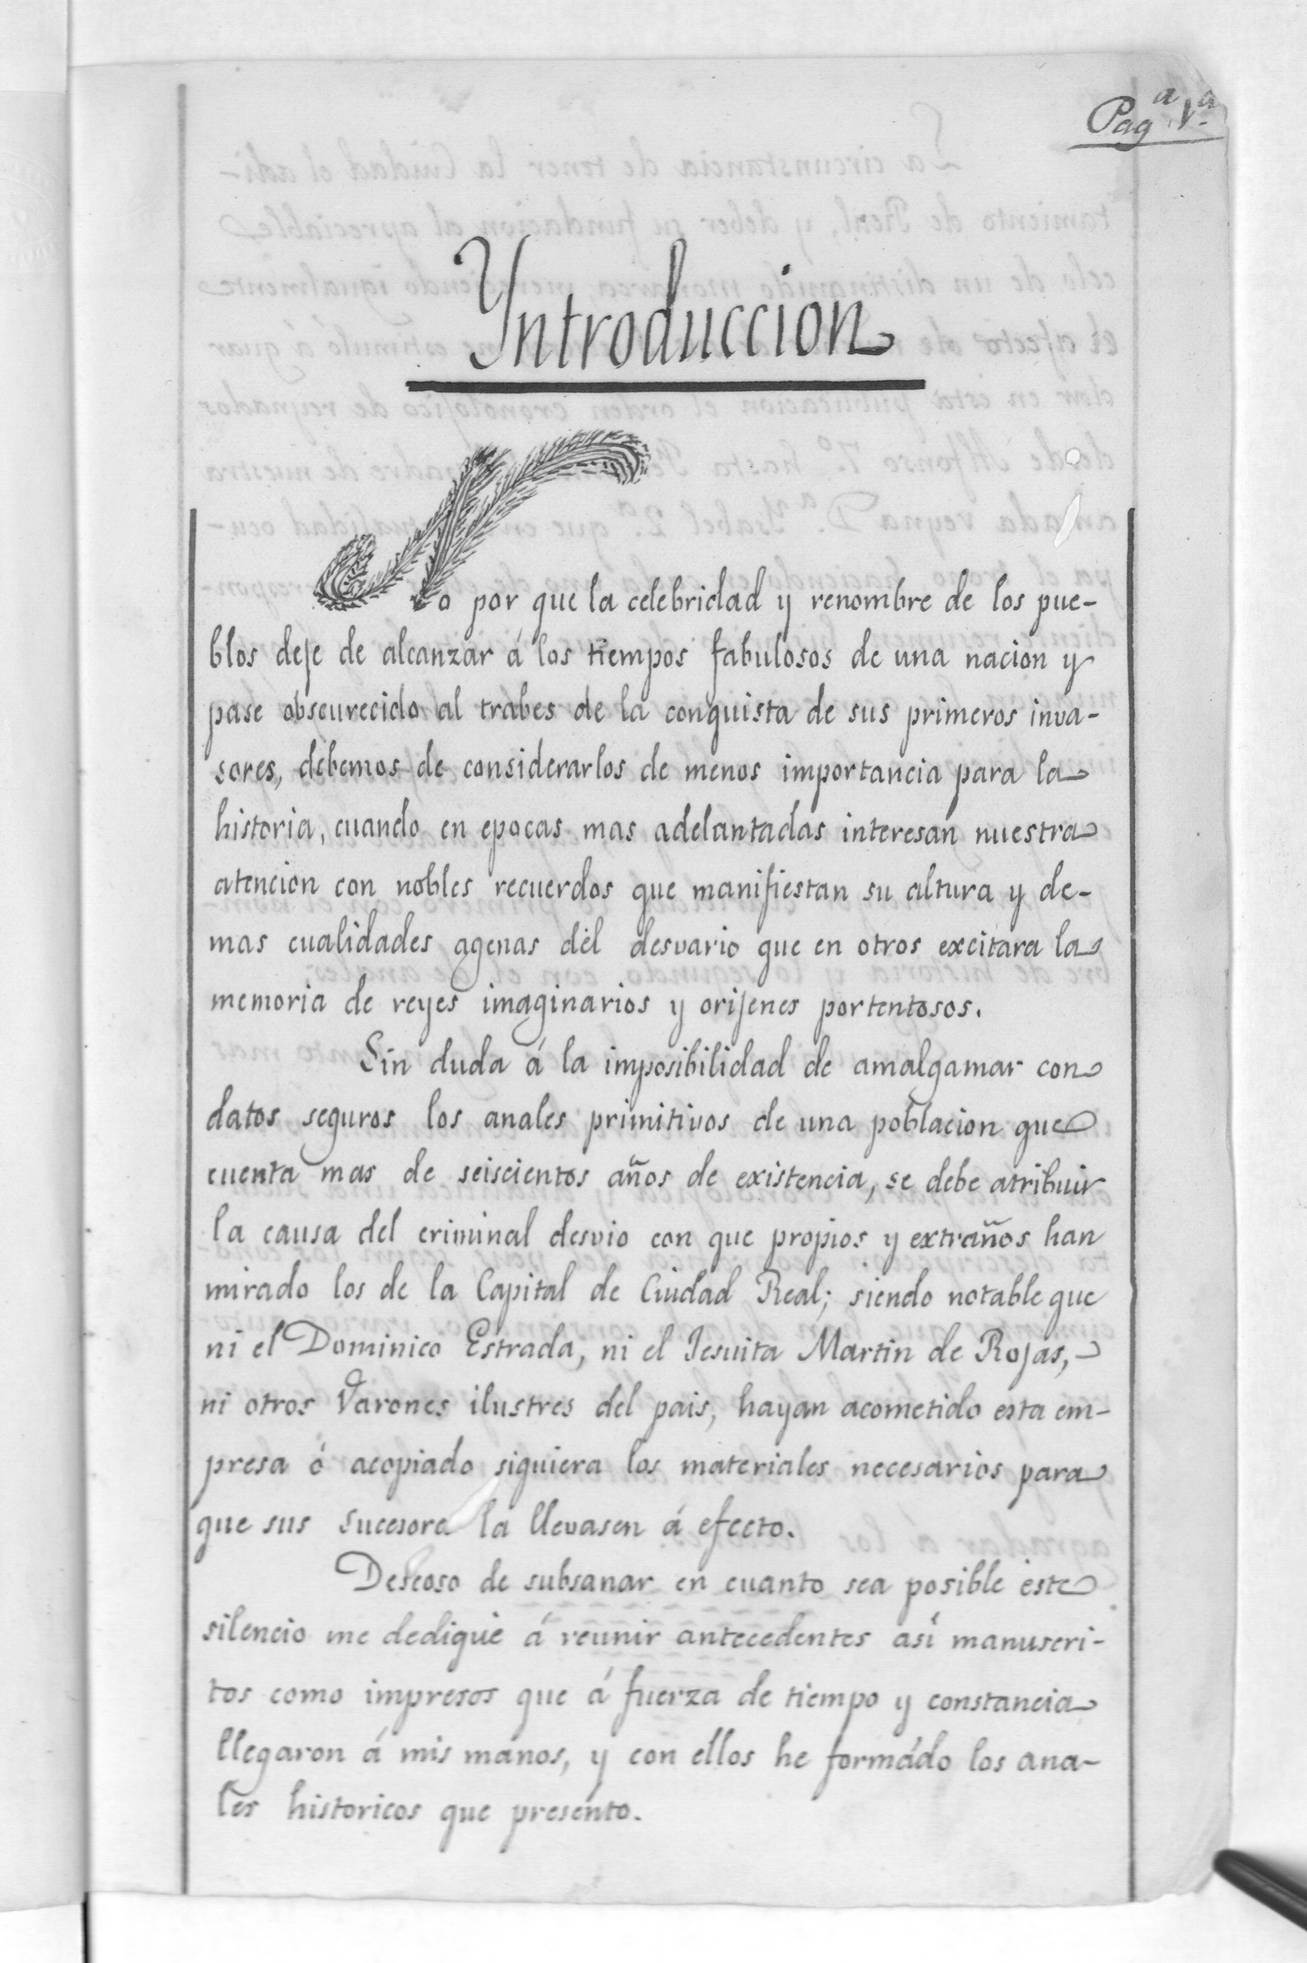 Pag.ª 1.ª
Yntroduccion
No por que la celebridad y renombre de los pue-
blos deje de alcanzar á los tiempos fabulosos de una nacion y
pase obscurecido al trabes de la conquista de sus primeros inva-
sores, debemos de considerarlos de menos importancia para la
historia, cuando en epocas mas adelantadas interesan nuestra
atencion con nobles recuerdos que manifiestan su altura y de-
mas cualidades agenas del desvario que en otros excitara la
memoria de reyes imaginarios y orijenes portentosos.
Sin duda á la imposibilidad de amalgamar con
datos seguros los anales primitivos de una poblacion que
cuenta mas de seiscientos años de existencia, se debe atribuir
la causa del criminal desvio con que propios y extraños han
mirado los de la Capital de Ciudad Real; siendo notable que
ni el Dominico Estrada, ni el Jesuita Martin de Rojas,
ni otros Varones ilustres del pais, hayan acometido esta em-
presa ó acopiado siquiera los materiales necesarios para
que sus sucesore la llevasen á efecto.
Deseoso de subsanar en cuanto sea posible este
silencio me dediqué á reunir antecedentes así manuscri-
tos como impresos que á fuerza de tiempo y constancia
llegaron á mis manos, y con ellos he formádo los ana-
les historicos que presento.